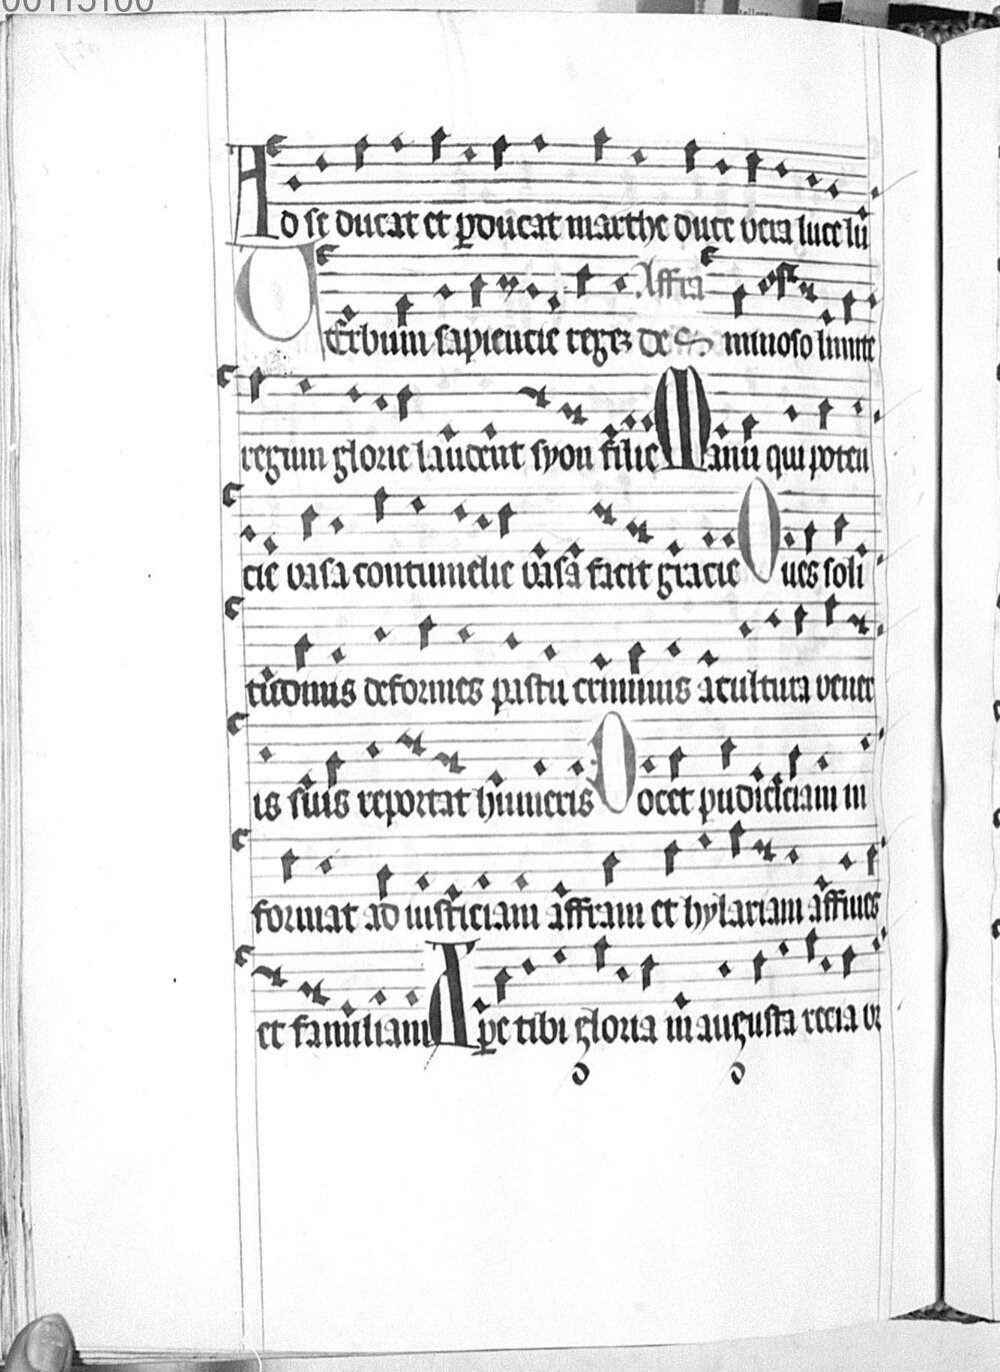 00113100
Ad se ducat et ꝑducat marthe duce vera luce lū
VErbum sapiencie regꝫ de Affra minoso limite
regum glorie laudent syon filie Manu qui poten
cie vasa contumelie vasa facit gracie Oues soli
tudinis deformes pastu criminis a cultura vener
is suis reportat humeris Docet pudiciciam in
format ad iusticiam affram et hylariam affines
et familiam Apꝑe tibi gloria in augusta recia